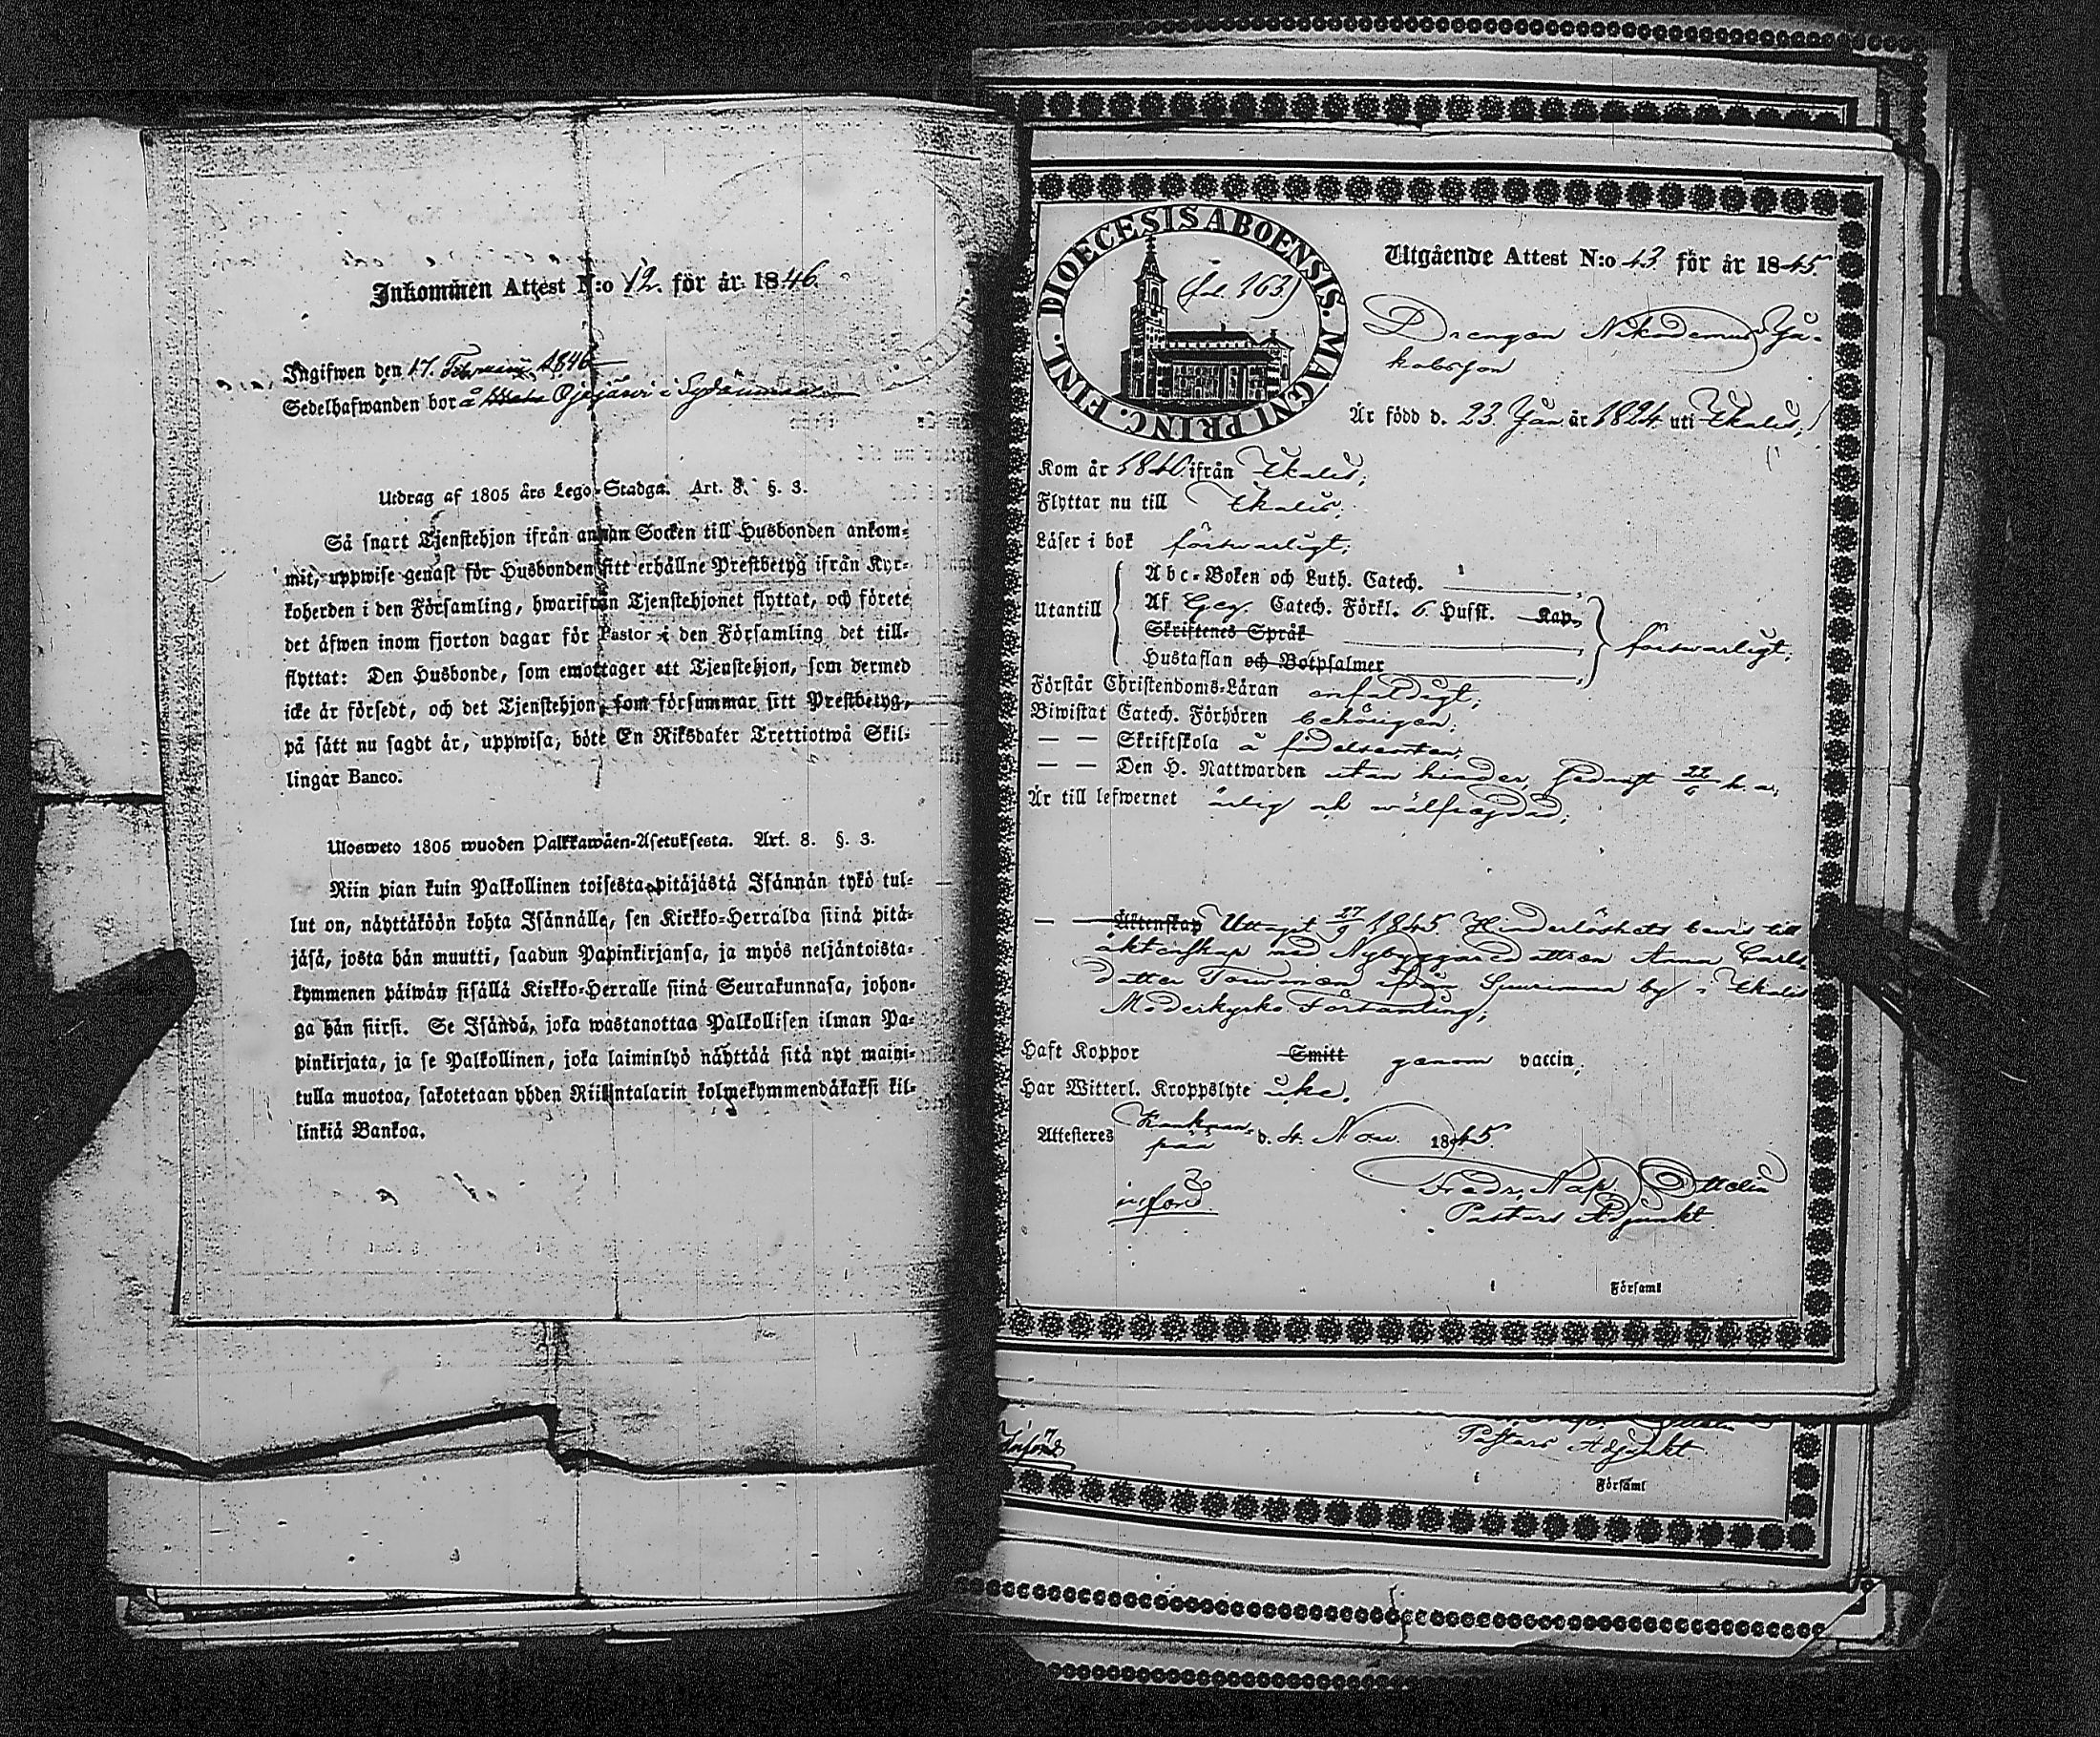 Inkommen Attest N:o 12. för år 1846.
Ingifwen den 17. Februarii 1846
Sedelhafwanden bor å Öjejärvi i Sydänmaa
Utdrag af 1805 års Lego-Stadga. Art. 8. §. 3.
Så snart Tjenstehjon ifrån annan Socken till Husbonden ankom-
mit, uppwise genast för Husbonden sitt erhållne Prestbetyg ifrån Kyr-
koherden i den Församling, hwarifrån Tjenstehjonet flyttat, och förete
det äfwen inom fjorton dagar för Pastor i den Församling det till-
flyttat: Den Husbonde, som emottager ett Tjenstehjon, som dermed
icke är försedt, och det Tjenstehjon, som försummar sitt Prestbetyg,
på sätt nu sagdt är, uppwisa, böte En Riksdaler Trettiotwå Skil-
lingar Banco.
Ulosweto 1805 wuoden Palkkawäen-Asetuksesta. Art. 8. §. 3.
Niin pian kuin Palkollinen toisesta pitäjästä Isännän tykö tul-
lut on, näyttäköön kohta Isännälle, sen Kirkko-Herralda siinä pitä-
jäsä, josta hän muutti, saadun Papinkirjansa, ja myös neljäntoista-
kymmenen päiwän sisällä Kirkko-Herralle siinä Seurakunnasa, johon-
ga hän siirsi. Se Isändä, joka wastanottaa Palkollisen ilman Pa-
pinkirjata, ja se Palkollinen, joka laiminlyö näyttää sitä nyt maini-
tulla muotoa, sakotetaan yhden Riikintalarin kolmekymmendäkaksi kil-
linkiä Bankoa.
DIOECESIS ABOENSIS. MAGNI PRINC. FINL.
(fol. 163)
Utgående Attest N:o 43 för år 1845
Drengen Nikodemus Ja-
kobsson
Är född d. 23 Jan. år 1824 uti Ikalis;
Kom år 1840 ifrån Ikalis;
Flyttar nu till Ikalis;
Läser i bok förswarligt;
Utantill
Abc-Boken och Luth. Catech.
Af Catech. Förkl. 6. Husst. Kap.
Skriftenes Språk
Hustaflan och Botpsalmer
förswarligt;
Förstår Christendoms-Läran enfaldigt;
Biwistat Catech. Förhören behörigen;
— — Skriftskola å födelseorten;
— — Den H. Nattwarden utan hinder, sednast 22/6 h. a;
Är till lefwernet ärlig och wälfrägdad;
— — Äktenskap Uttaget 27/9 1845 Hinderlöshets bewis till
äktenskap med Nybyggaredottren Anna Carls-
dotter ifrån by i Ikalis
Moderkyrko Församling;
Haft Koppor Smitt genom vaccin;
Har Witterl. Kroppslyte icke.
Attesteres Kankaan-
pää d. 4. Nov. 1845
införd.
Fredr. Nap. Ottelin
Pastors Adjunkt.
i Församl
Införd
Pastors Adjunkt
i Församl